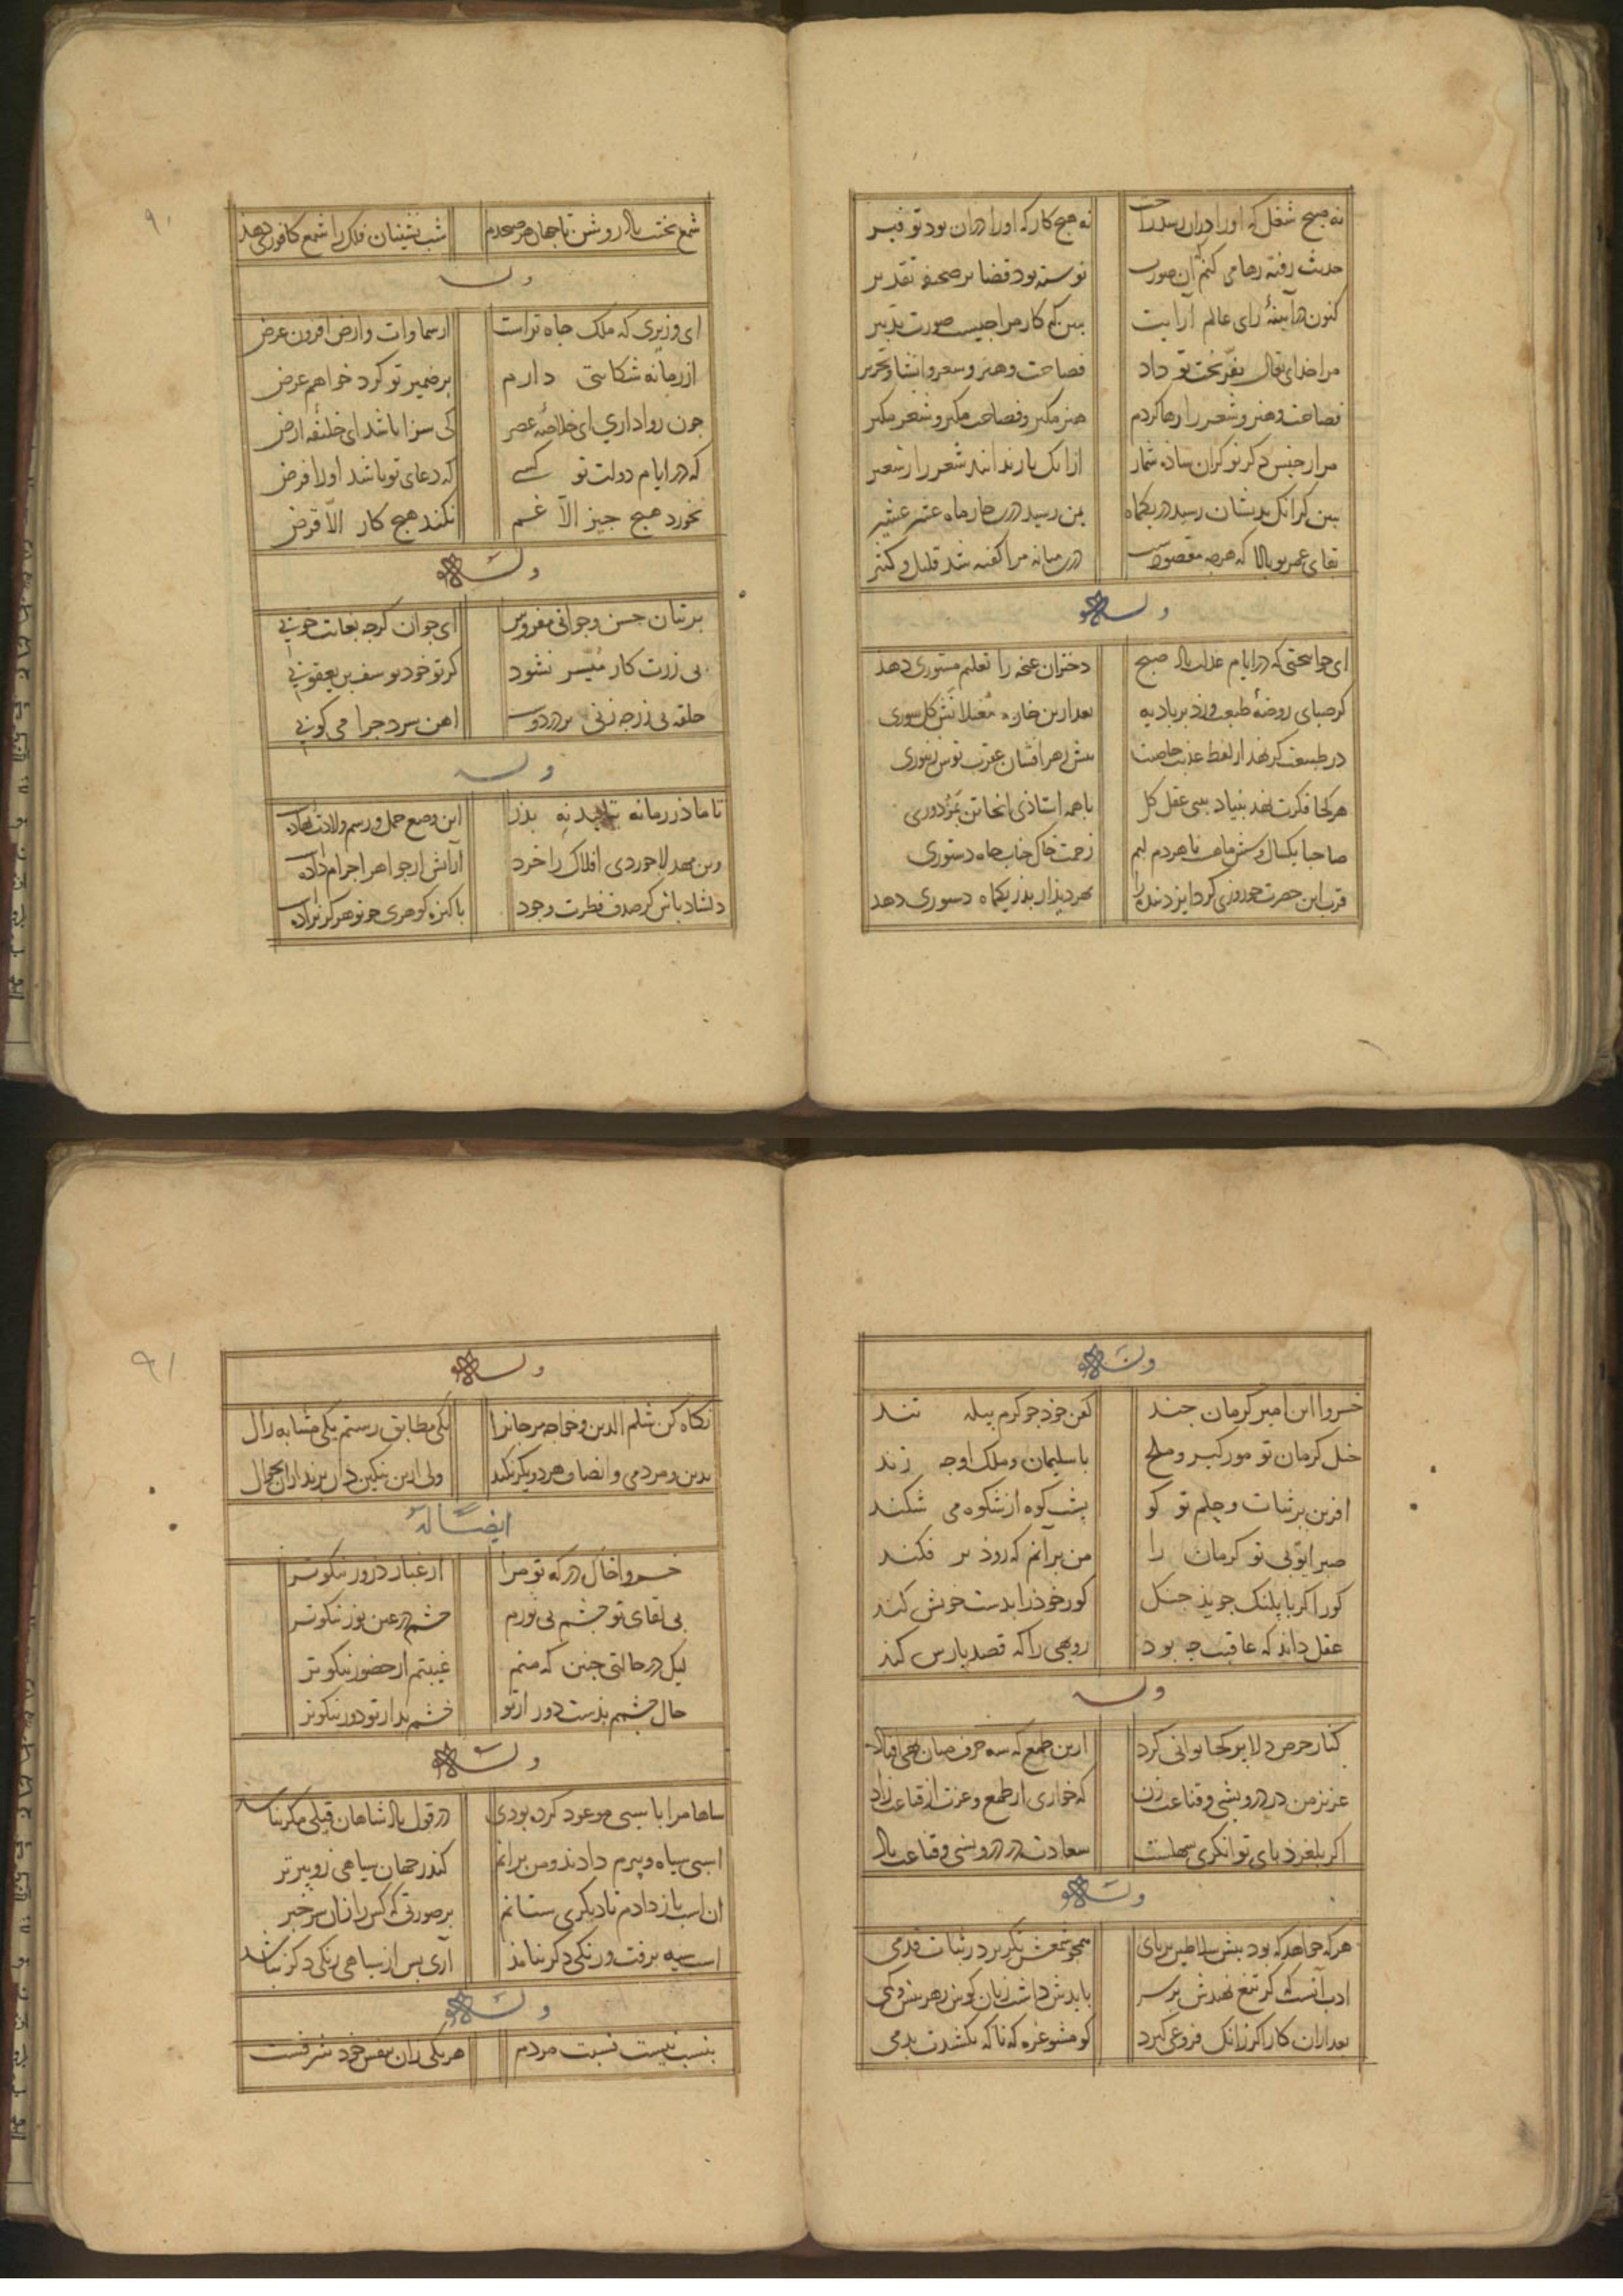 نه هیچ شغل که او را دران رسد راحت نه هیچ کار که او را دران بود توفیر
حدیث رفته رها می کنم که آن صورت نوشته بود قضا بر صحیفه تقدیر
کنون در آینهٔ رای عالم آرایت ببین که کار مرا چیست صورت تدبیر
مرا خدای تعالی بفر بخت تو داد فصاحت و هنر و شعر و انشا و تحریر
فصاحت و هنر و شعر را رها کردم هنر مگیر و فصاحت مگیر و شعر مگیر
مرا از جنس دگر نوکران ساده شمار
ببین که آنک بدیشان رسید در یکماه بمن رسید درین چار ماه عشر عشیر
بقای عمر تو بادا که هرچه مقصودست درین میانه مرا گفته شد قلیل و کثیر
وله
ای جوانبختی که در ایام عدلت باد صبح دختران غنچه را تعلیم مستوری دهد
گر صبای روضهٔ طبعت وزد بر بادیه بعد ازین خار مغیلانش گل سوری
در طبیعت گر نهد از لفظ عذبت خاصیت نیش زهر افشان عقرب نوش زنبوری
هر کجا فکرت نهد بنیاد بیتی عقل کل با همه استاذی انجا تن بمزدوری
صاحبا یکسال و شش ماهست تا هر دم لبم زحمت خاک جناب جاه دستوری
قرب این حضرت چو روزی کرد ایزد بنده را بهر دیدار پدر یکماه دستوری دهد
۹۰
شمع بختت باد روشن تا جهان هر صبحدم شب نشینان فلک را شمع کافوری دهد
وله
ای وزیری که ملک جاه تراست از سماوات و ارض افزون عرض
از زمانه شکایتی دارم بر ضمیر تو کرد خواهم عرض
چون روا داری ای خلاصهٔ عصر کی سزا باشد ای خلیفه ارض
که در ایام دولت تو کسی که دعای تو باشد او را فرض
نخورد هیچ چیز الا غم نکند هیچ کار الا قرض
وله
بر بتان حسن و جوانی مفروش ای جوان گرچه بغایت خوبی
بی زرت کار میسر نشود گر تو خود یوسف بن یعقوبی
حلقه بی زر چه زنی بر در دوست اهن سرد چرا می کوبی
وله
تا مادر زمانه بدر این وضع حمل و رسم ولادت نهاده
وین مهد لاجوردی افلاک را خرد آرایش از جواهر اجرام داده
دلشاد باش کز صدف فطرت وجود پاکیزه گوهری چو تو هرگز نزاده
وله
خسروا این امیر کرمان چند کفن خود چو کرم پیله تند
خیل کرمان تو مور گیر و ملخ با سلیمان و ملک او چه زند
افرین بر ثبات و حلم تو کو پشت کوه از شکوه می شکند
صبر ایوبی تو کرمان را من برآنم که زود بر فکند
گور اگر با پلنگ جوید جنگ گور خود را بدست خویش کند
عقل داند که عاقبت چه بود روبهی را که قصد پارس کند
وله
کنار حرص دلا پر کجا توانی کرد ازین طمع که سه حرف میان تهی افتاد
عزیز من در درویشی و قناعت زن که خواری از طمع و عزت از قناعت زاد
اگر بلغزد پای توانگری سهلست سعادت در درویشی و قناعت باد
وله
هر که خواهد که بود پیش سلاطین بر پای همچو شمعش نگزیرد ز ثبات قدمی
ادب آنست که گر تیغ نهندش بر سر بایدش داشت زبان گوش ز هر بیش و کمی
بعد ازان کار اگر زانک فروغی گیرد گو مشو غره که ناگه بکشندت بدمی
۹۱
وله
نگاه کن شلم الدین و خواجه مرجانرا یکی مطابق رستم یکی مشابه زال
بدین و مردمی و انصاف هر دو یکرنگند
ایضاً له
خسروا خاک درگه تو مرا از غبار ذرور نیکوتر
بی لقای تو چشم بی نورم چشم در عین نور نیکوتر
لیک در حالتی چنین که منم غیبتم از حضور نیکوتر
حال چشمم بدست دور از تو چشم بد از تو دور نیکوتر
وله
شاها مرا باسبی موعود کرده بودی در قول پادشاهان قیلی مگر نباشد
اسبی سیاه و پیرم دادند و من برانم کندر جهان سیاهی زو پیرتر
ان اسب باز دادم تا دیگری ستانم بر صورتی که کس را زان سر خبر
اسب سیه برفت و رنگی دگر نیامد آری پس از سیاهی رنگی دگر نباشد
وله
بنسب نیست نسبت مردم هر یکی زان بنفس خود شرفست